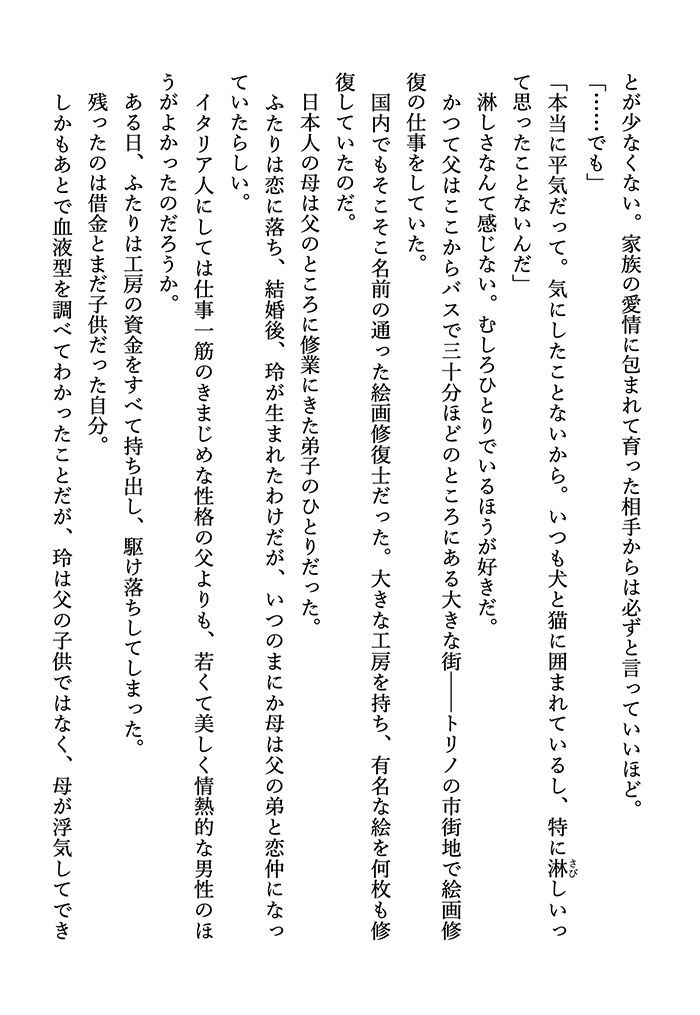 とが少なくない。家族の愛情に包まれて育った相手からは必ずと言っていいほど。
「……でも」
「本当に平気だって。気にしたことないから。いつも犬と猫に囲まれているし、特に淋しいっ
て思ったことないんだ」
淋しさなんて感じない。むしろひとりでいるほうが好きだ。
かつて父はここからバスで三十分ほどのところにある大きな街――トリノの市街地で絵画修
復の仕事をしていた。
国内でもそこそこ名前の通った絵画修復士だった。大きな工房を持ち、有名な絵を何枚も修
復していたのだ。
日本人の母は父のところに修業にきた弟子のひとりだった。
ふたりは恋に落ち、結婚後、玲が生まれたわけだが、いつのまにか母は父の弟と恋仲になっ
ていたらしい。
イタリア人にしては仕事一筋のきまじめな性格の父よりも、若くて美しく情熱的な男性のほ
うがよかったのだろうか。
ある日、ふたりは工房の資金をすべて持ち出し、駆け落ちしてしまった。
残ったのは借金とまだ子供だった自分。
しかもあとで血液型を調べてわかったことだが、玲は父の子供ではなく、母が浮気してでき
さび